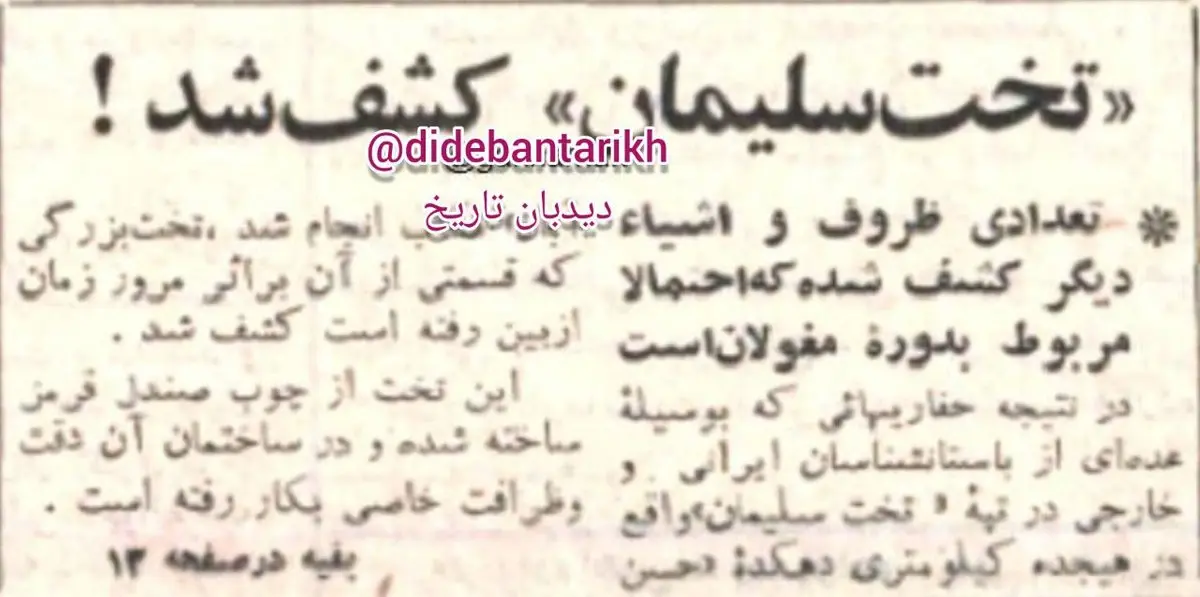 «تخت سلیمان» کشف شد !
@didebantarikh
دیدبان تاریخ
* تعدادی ظروف و اشیاء
دیگر کشف شده که احتمالا
مربوط بدورهٔ مغولان است
در نتیجه حفاریهائی که بوسیلهٔ
عده‌ای از باستانشناسان ایرانی و
خارجی در تپهٔ « تخت سلیمان» واقع
در هیجده کیلومتری دهکدهٔ «حسن
انجام شد ، تخت بزرگی
که قسمتی از آن براثر مرور زمان
ازبین رفته است کشف شد .
این تخت از چوب صندل قرمز
ساخته شده و در ساختمان آن دقت
وظرافت خاصی بکار رفته است .
بقیه درصفحه ۱۳